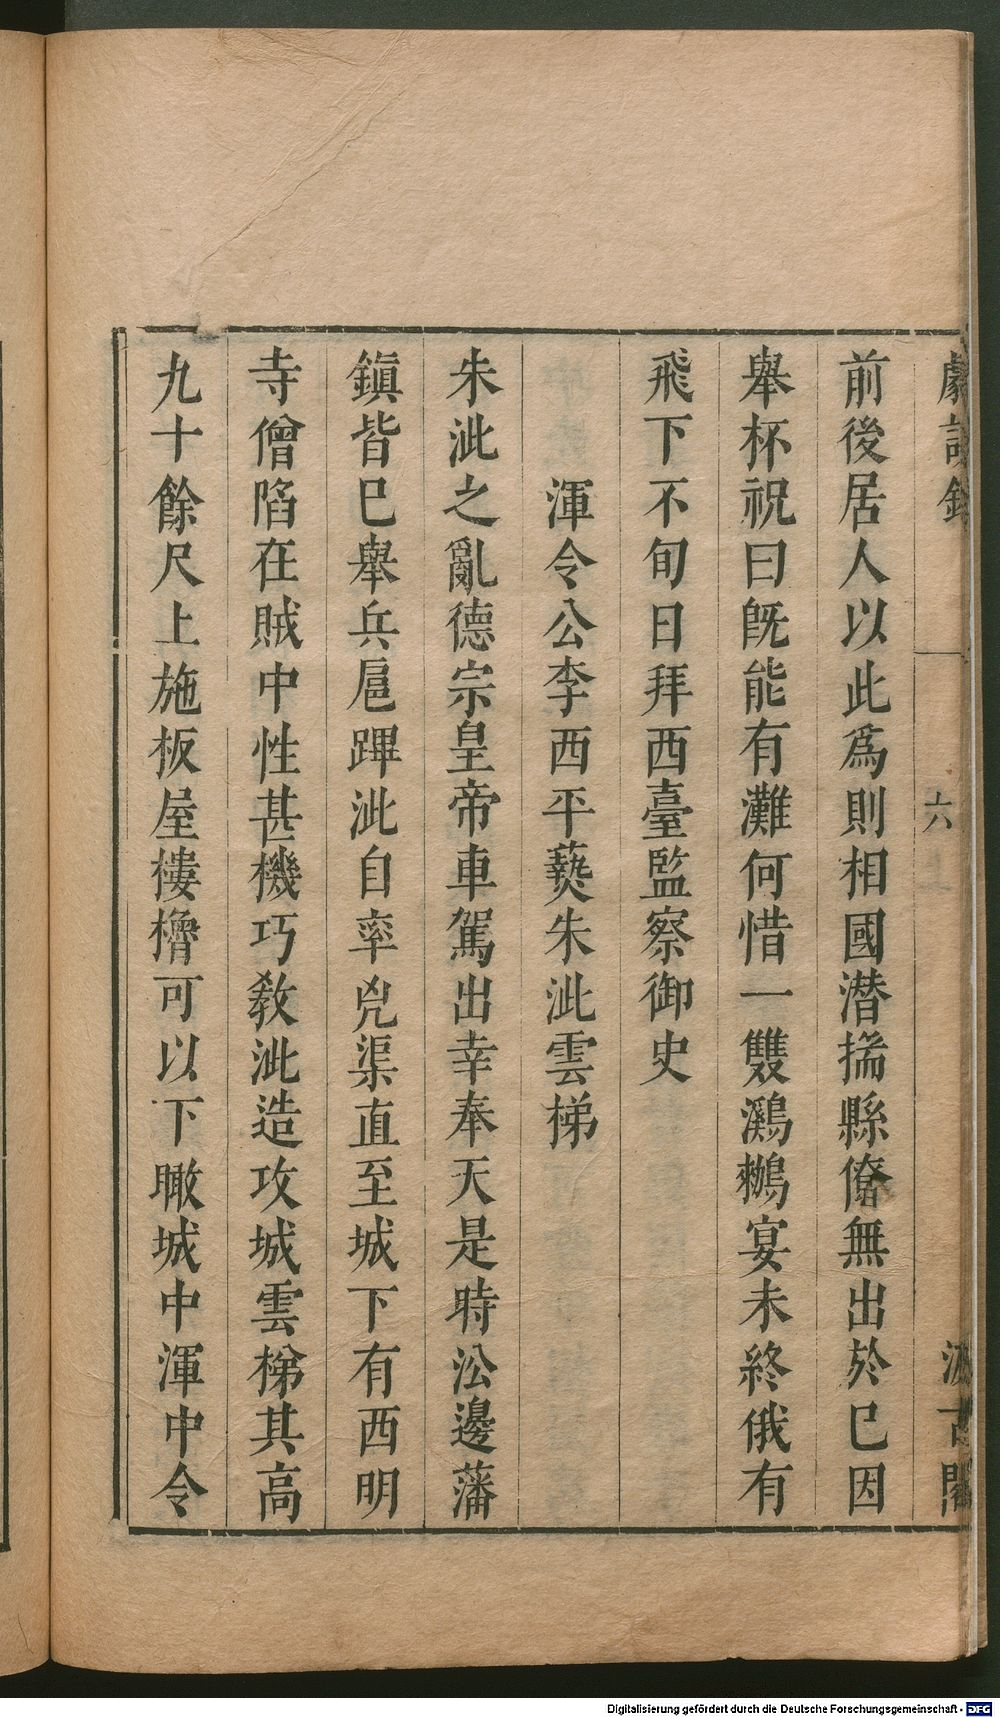 劇談錄
六上
汲古閣
前後居人以此爲則相國潜揣縣僚無出於巳因
舉杯祝曰旣能有灘何惜一雙鸂鶒宴未終俄有
飛下不旬日拜西臺監察御史
渾令公李西平爇朱泚雲梯
朱泚之亂德宗皇帝車駕出幸奉天是時㳂邊藩
鎭皆巳舉兵扈蹕泚自率兇渠直至城下有西明
寺僧陷在賊中性甚機巧敎泚造攻城雲梯其高
九十餘尺上施板屋樓櫓可以下瞰城中渾中令
Digitalisierung gefördert durch die Deutsche Forschungsgemeinschaft - DFG